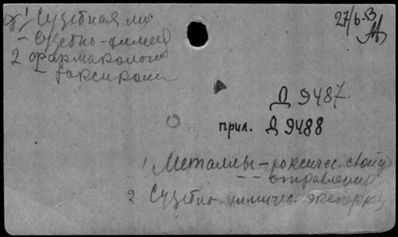 1 Судебная мед
- Судебно-химич
2 фармакология
токсиколог
27/6 53
Д 9487
прил. Д 9488
1 Металлы - токсичес. свойст
-- отравления
2 Судебно-химичес. экспертиза